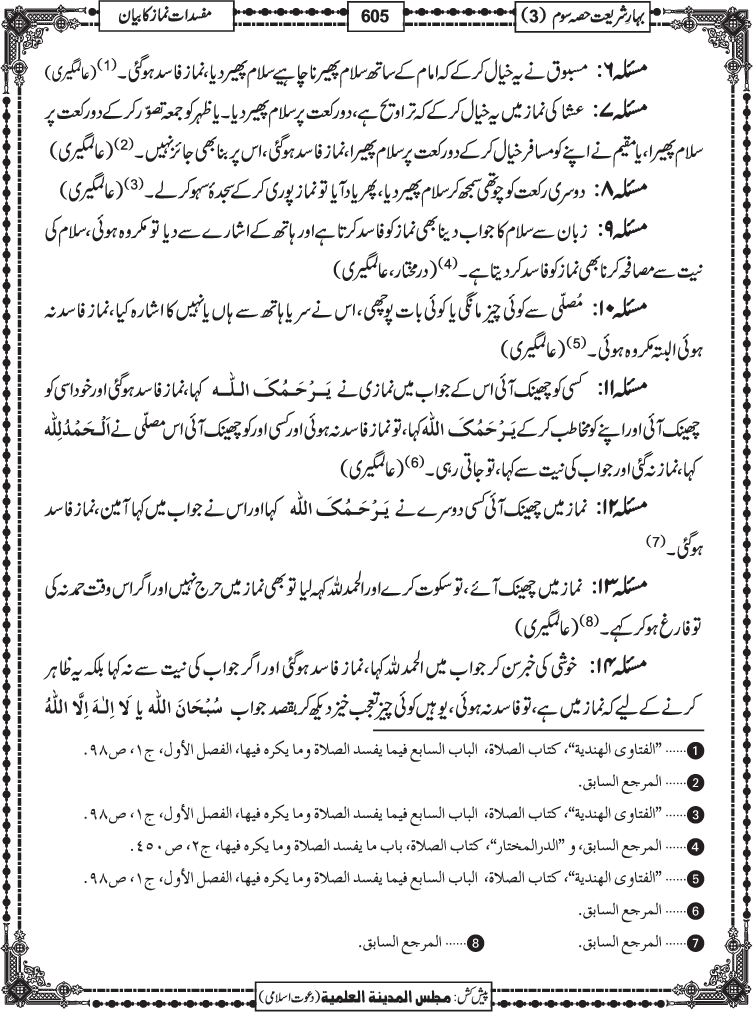 بہارِ شریعت حصہ سوم (3)
605
مفسدات نماز کا بیان
مسئلہ ۶: مسبوق نے یہ خیال کر کے کہ امام کے ساتھ سلام پھیرنا چاہیے سلام پھیر دیا، نماز فاسد ہوگئی۔(1) (عالمگیری)
مسئلہ ۷: عشا کی نماز میں یہ خیال کر کے کہ تراویح ہے، دو رکعت پر سلام پھیر دیا۔ یا ظہر کو جمعہ تصوّر کر کے دو رکعت پر
سلام پھیرا، یا مقیم نے اپنے کو مسافر خیال کر کے دو رکعت پر سلام پھیرا، نماز فاسد ہوگئی، اس پر بنا بھی جائز نہیں۔(2) (عالمگیری)
مسئلہ ۸: دوسری رکعت کو چوتھی سمجھ کر سلام پھیر دیا، پھر یاد آیا تو نماز پوری کر کے سجدۂ سہو کر لے۔(3) (عالمگیری)
مسئلہ ۹: زبان سے سلام کا جواب دینا بھی نماز کو فاسد کرتا ہے اور ہاتھ کے اشارے سے دیا تو مکروہ ہوئی، سلام کی
نیت سے مصافحہ کرنا بھی نماز کو فاسد کر دیتا ہے۔(4) (درمختار، عالمگیری)
مسئلہ ۱۰: مُصلّی سے کوئی چیز مانگی یا کوئی بات پوچھی، اس نے سر یا ہاتھ سے ہاں یا نہیں کا اشارہ کیا، نماز فاسد نہ
ہوئی البتہ مکروہ ہوئی۔(5) (عالمگیری)
مسئلہ ۱۱: کسی کو چھینک آئی اس کے جواب میں نمازی نے یَرْحَمُکَ اللّٰہ کہا، نماز فاسد ہوگئی اور خود اسی کو
چھینک آئی اور اپنے کو مخاطب کر کے یَرْحَمُکَ اللّٰہ کہا، تو نماز فاسد نہ ہوئی اور کسی اور کو چھینک آئی اس مصلّی نے اَلْحَمْدُلِلّٰہ
کہا، نماز نہ گئی اور جواب کی نیت سے کہا، تو جاتی رہی۔(6) (عالمگیری)
مسئلہ ۱۲: نماز میں چھینک آئی کسی دوسرے نے یَرْحَمُکَ اللّٰہ کہا اور اس نے جواب میں کہا آمین، نماز فاسد
ہوگئی۔(7)
مسئلہ ۱۳: نماز میں چھینک آئے، تو سکوت کرے اور الحمد للہ کہہ لیا تو بھی نماز میں حرج نہیں اور اگر اس وقت حمد نہ کی
تو فارغ ہو کر کہے۔(8) (عالمگیری)
مسئلہ ۱۴: خوشی کی خبر سن کر جواب میں الحمد للہ کہا، نماز فاسد ہوگئی اور اگر جواب کی نیت سے نہ کہا بلکہ یہ ظاہر
کرنے کے لیے کہ نماز میں ہے، تو فاسد نہ ہوئی، یوہیں کوئی چیز تعجب خیز دیکھ کر بقصد جواب سُبْحَانَ اللّٰہ یا لَا اِلٰـہَ اِلَّا اللّٰہُ
1 ...... "الفتاوی الھندیۃ"، کتاب الصلاۃ، الباب السابع فیما یفسد الصلاۃ وما یکرہ فیھا، الفصل الأول، ج۱، ص۹۸.
2 ...... المرجع السابق.
3 ...... "الفتاوی الھندیۃ"، کتاب الصلاۃ، الباب السابع فیما یفسد الصلاۃ وما یکرہ فیھا، الفصل الأول، ج۱، ص۹۸.
4 ...... المرجع السابق، و "الدرالمختار"، کتاب الصلاۃ، باب ما یفسد الصلاۃ وما یکرہ فیھا، ج۲، ص۴۵۰.
5 ...... "الفتاوی الھندیۃ"، کتاب الصلاۃ، الباب السابع فیما یفسد الصلاۃ وما یکرہ فیھا، الفصل الأول، ج۱، ص۹۸.
6 ...... المرجع السابق.
7 ...... المرجع السابق. 8 ...... المرجع السابق.
پیش کش: مجلس المدینۃ العلمیۃ (دعوت اسلامی)